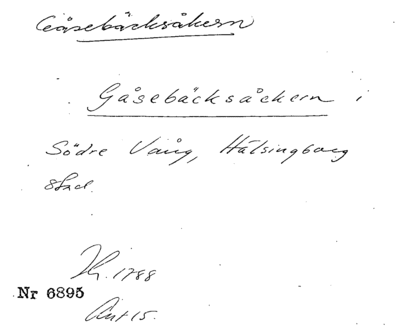 Gåsebäcksåkern
Gåsebäcksåckern i
Södre Vång, Hälsingborg
stad.
Hr. 1788
Nr 6895
Akt 15.